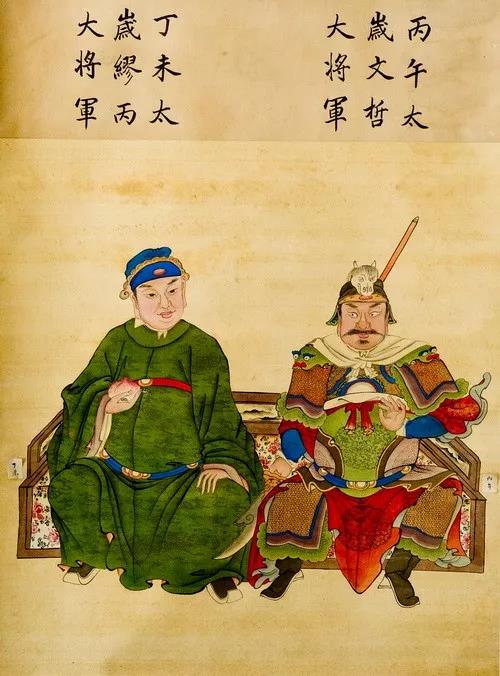 丙午太
嵗文哲
大将軍
丁未太
嵗繆丙
大将軍